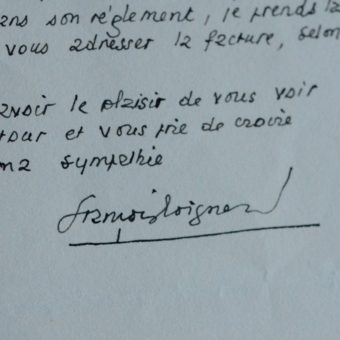 ans son règlement, je prends la
vous adresser la facture, selon
avoir le plaisir de vous voir
tour et vous prie de croire
ma sympathie
François